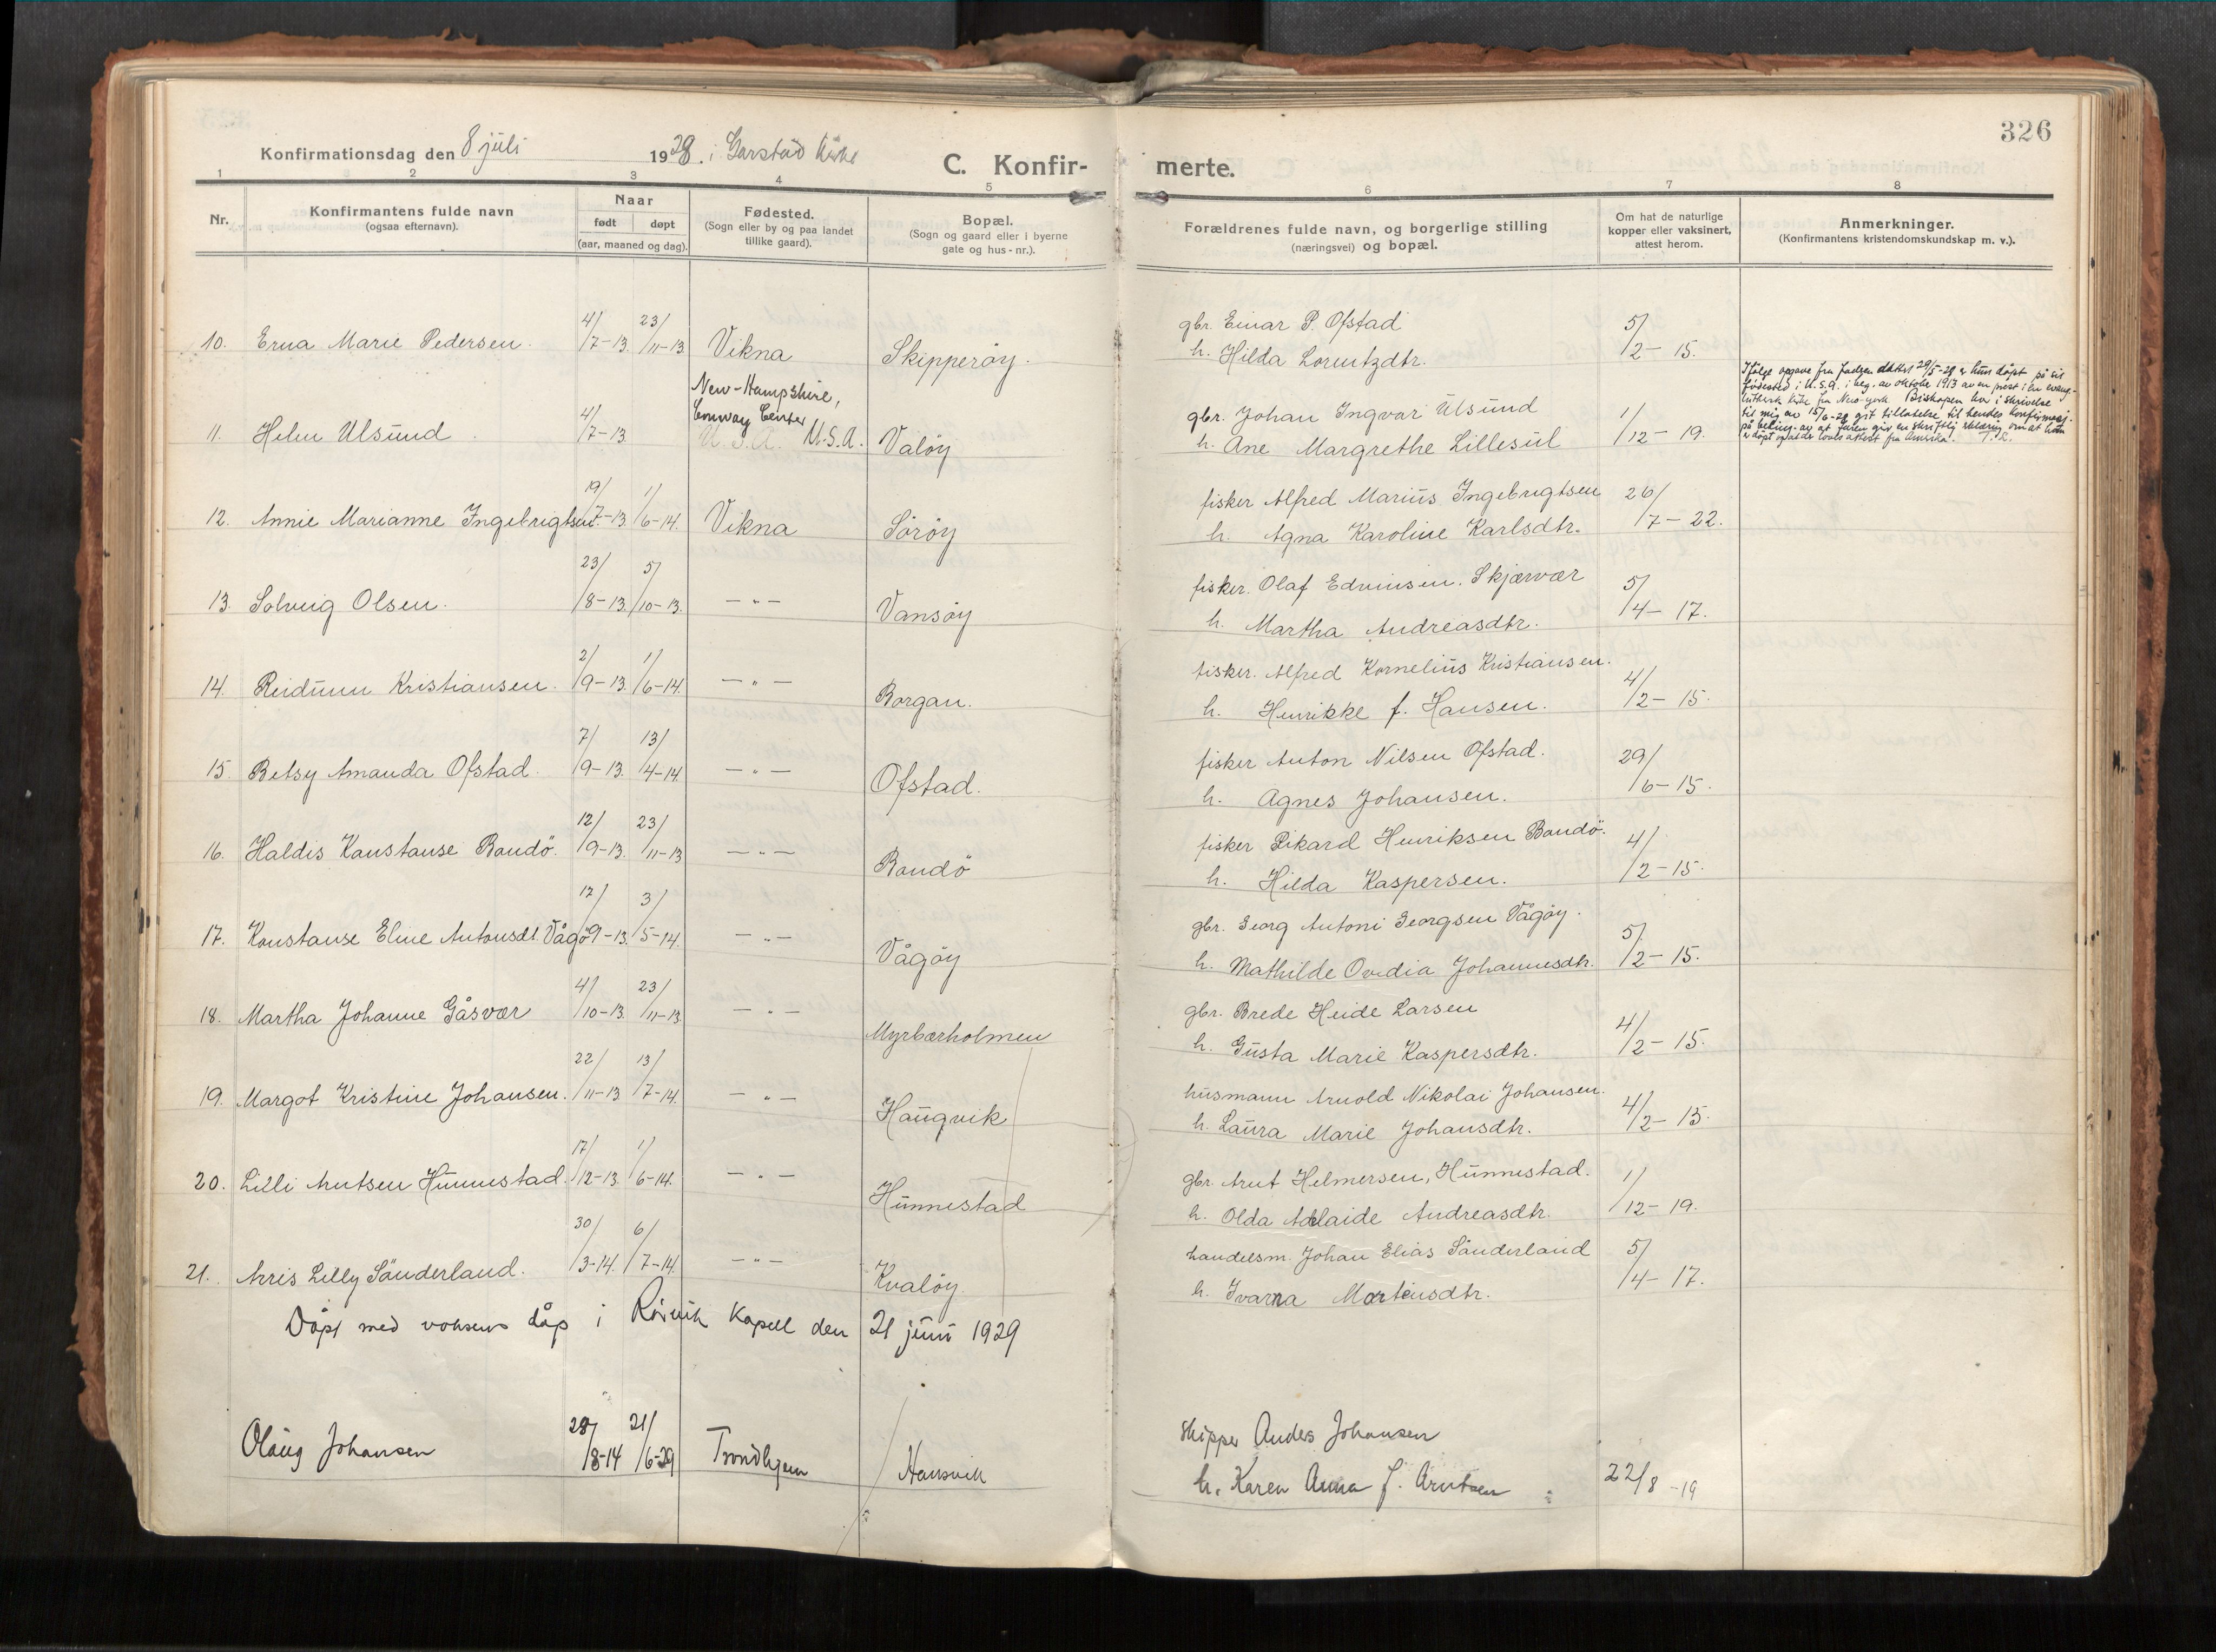 326
Konfirmationsdag den 8 juli 1928. i Garstad kirke
C. Konfir- merte.
1 2 3 4 5 6 7 8
Nr.
Konfirmantens fulde navn
(ogsaa efternavn).
Naar
født døpt
(aar, maaned og dag).
Fødested.
(Sogn eller by og paa landet
tillike gaard).
Bopæl.
(Sogn og gaard eller i byerne
gate og hus-nr.).
Forældrenes fulde navn, og borgerlige stilling
(næringsvei) og bopæl.
Om hat de naturlige
kopper eller vaksinert,
attest herom.
Anmerkninger.
(Konfirmantens kristendomskundskap m. v.).
10. Erna Marie Pedersen. 4/7-13 23/11-13 Vikna Skipperøy. gbr. Einar P. Ofstad 5/2-15.
h. Hilda Lorentzdtr.
11. Helen Ulsund 4/7-13 New-Hampshire, Conway Center U.S.A. U.S.A. Valøy gbr. Johan Ingvar Ulsund 1/12-19.
h. Ane Margrethe Lillesul
Ifølge opgave fra fadren 29/5-28 er hun døpt på sit
fødested i U.S.A. i beg. av oktober 1913 av en prest i en evang-
luthersk kirke fra New-York Biskopen har i skrivelse
til mig av 15/6-28 git tillatelse til hendes konfirmasj.
på beting. av at faren giv en skriftlig erklæring om at hun
er døpt attest fra Amerika.
12. Annie Marianne Ingebrigtsen 19/7-13 1/6-14. Vikna Sörøy fisker Alfred Marius Ingebrigtsen 26/7-22.
h. Agna Karoline Karlsdtr.
13. Solveig Olsen. 23/8-13. 5/10-13. -"- Vansøy fisker. Olaf Edvinsen. Skjærvær 5/4-17.
h. Martha Andreasdtr.
14. Reidunn Kristiansen. 2/9-13. 1/6-14. -"- Borgan. fisker. Alfred Kornelius Kristiansen. 4/2-15.
h. Henrikke f. Hansen.
15. Betsy Amanda Ofstad. 7/9-13. 13/4-14. -"- Ofstad. fisker Anton Nilsen Ofstad. 29/6-15.
h. Agnes Johansen.
16. Haldis Konstanse Bondö. 12/9-13. 23/11-13 -"- Bondö fisker Rikard Henriksen Bondö. 4/2-15.
h. Hilda Kaspersen.
17. Konstanse Eline Antonsdt. Vågö 17/9-13. 3/5-14. -"- Vågøy gbr. Georg Antoni Georgsen Vågøy. 5/2-15.
h. Mathilde Ovedia Johannesdtr.
18. Martha Johanne Gåsvær 4/10-13. 23/11-13 -"- Myrbærholmen gbr. Brede Heide Larsen 4/2-15.
h. Gusta Marie Kaspersdtr.
19. Margot Kristine Johansen. 22/11-13 13/7-14. -"- Haugvik husmann Arnold Nikolai Johansen. 4/2-15.
h. Laura Marie Johansdtr.
20. Lilli Arntsen Hunnestad. 17/12-13. 1/6-14. -"- Hunnestad gbr. Arnt Helmersen, Hunnestad. 1/12-19.
h. Olda Adelaide Andreasdtr.
21. Arris Lilly Sånderland. 30/3-14. 6/7-14. -"- Kvaløy. handelsm. Johan Elias Sånderland 5/4-17.
h. Ivarna Mortensdtr.
Døpt med voksen dåp i Rörvik Kapell den 21 juni 1929
Olaug Johansen 28/8-14 21/6-29 Trondhjem Hansvik skipper Anders Johansen
h. Karen Anna f. Arntsen 22/8-19